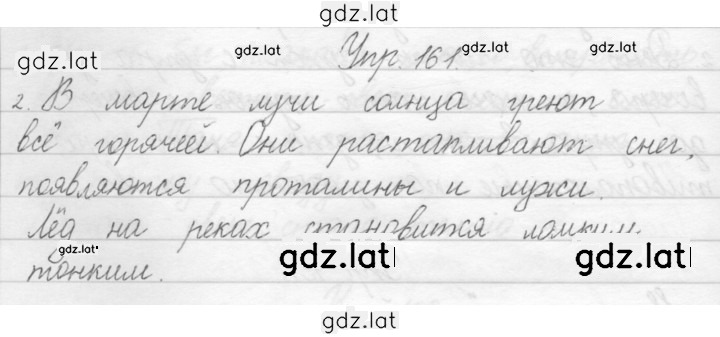 gdz.lat
gdz.lat gdz.lat gdz.lat gdz.lat
Упр. 161.
2. В марте лучи солнца греют
всё горячей. Они растапливают снег,
появляются проталины и лужи.
Лёд на реках становится ломким,
gdz.lat
тонким.
gdz.lat gdz.lat
gdz.lat